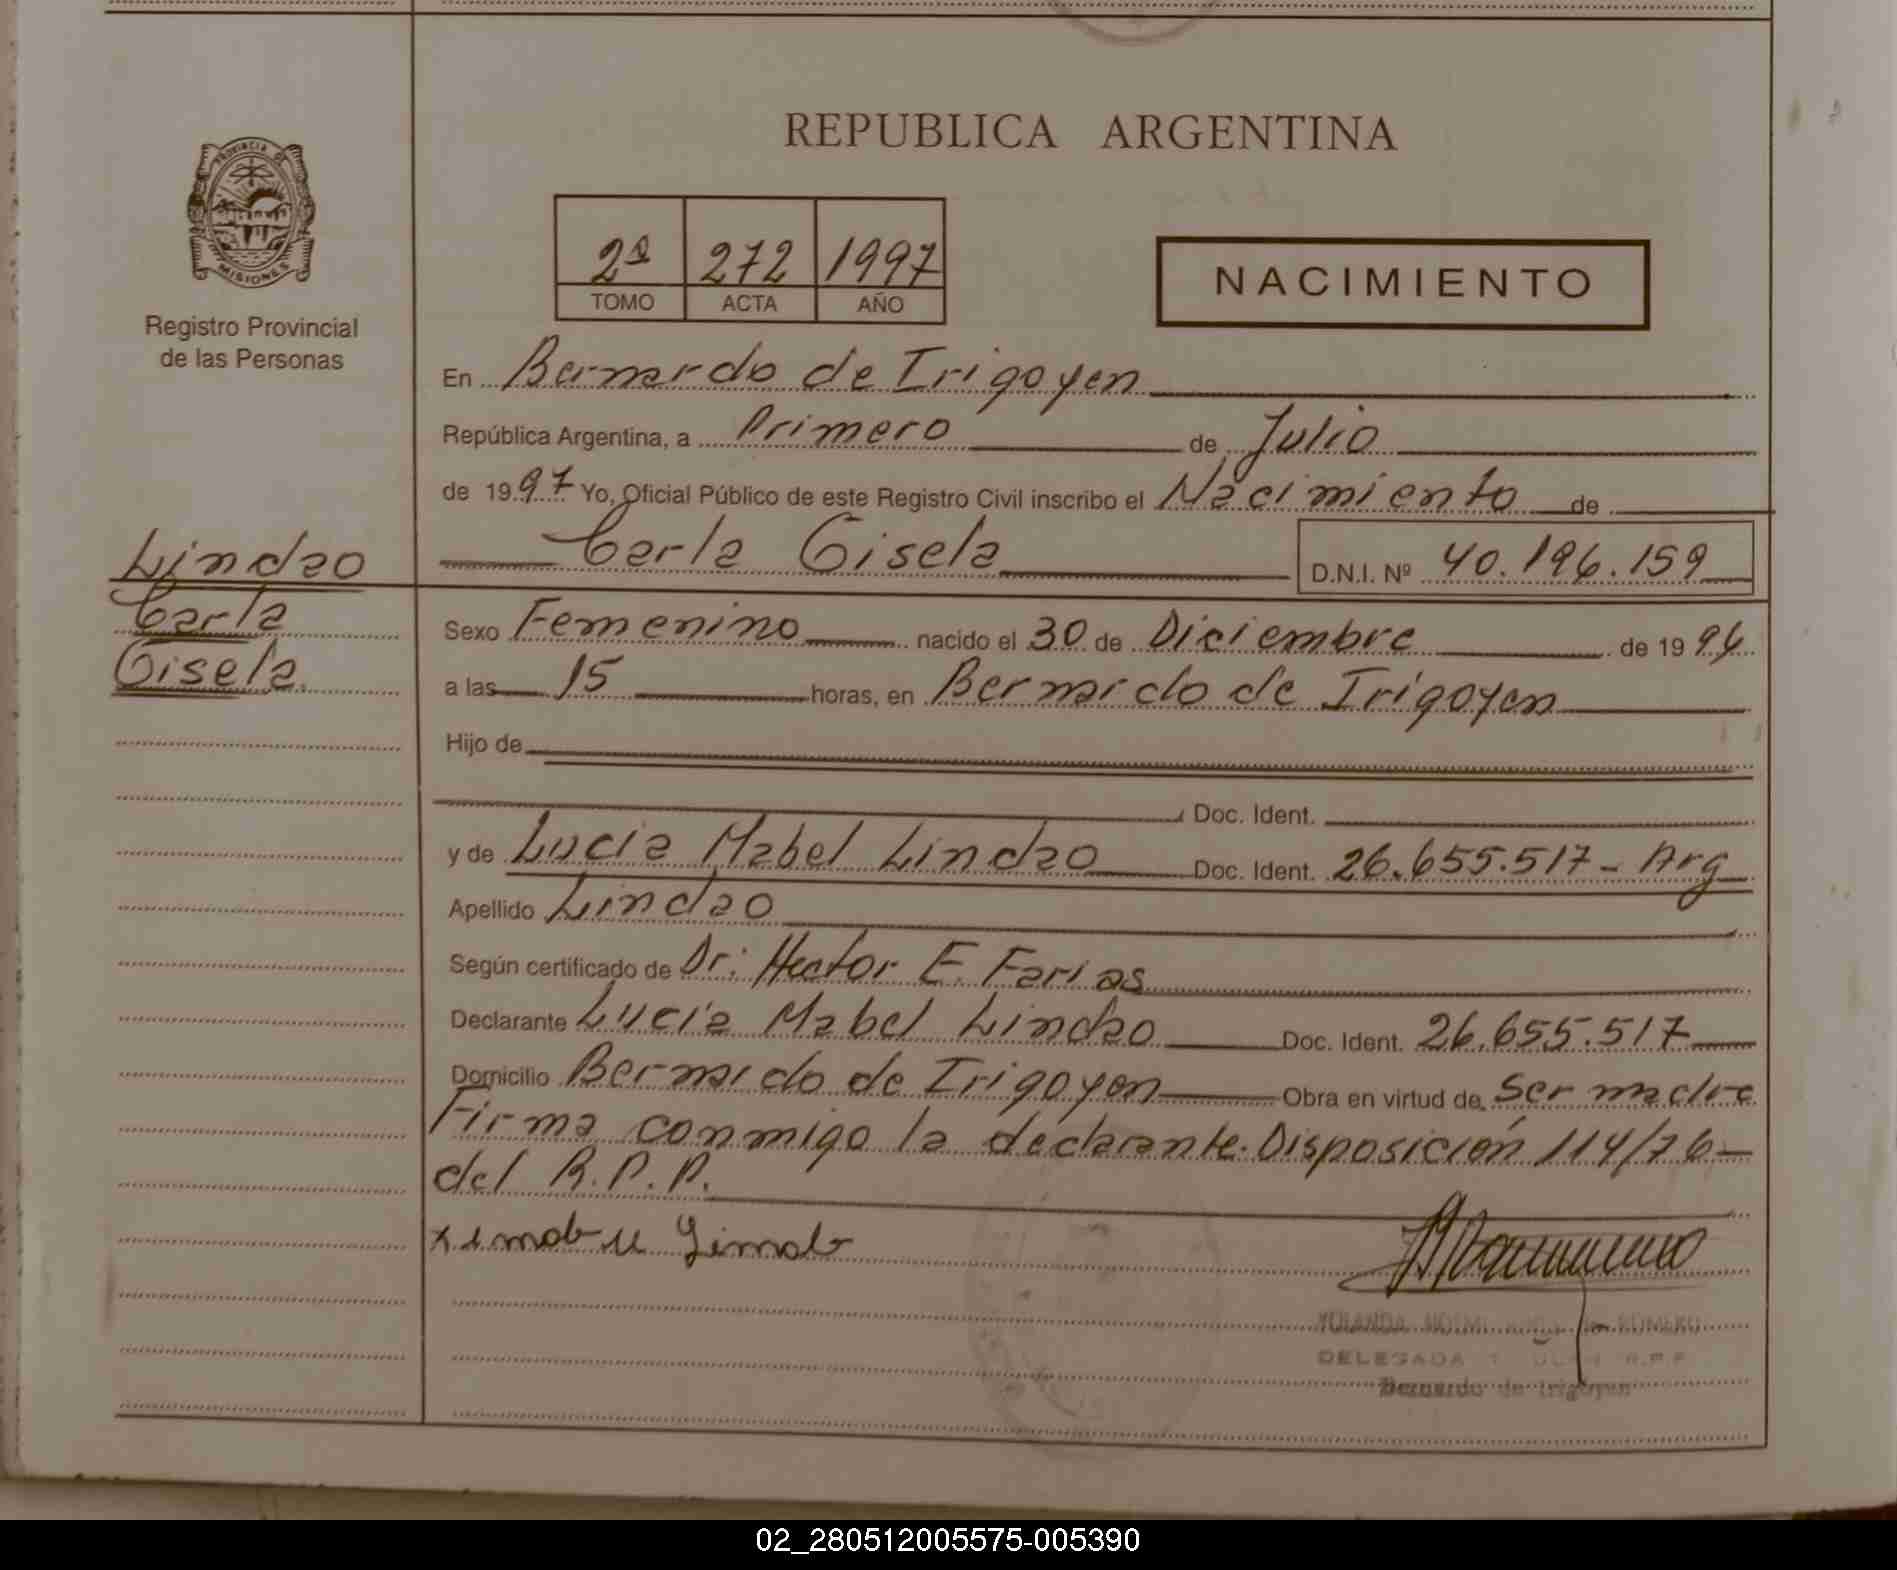 REPUBLICA ARGENTINA
PROVINCIA DE MISIONES
Registro Provincial
de las Personas
2º 272 1997
TOMO ACTA AÑO
NACIMIENTO
En Bernardo de Irigoyen
República Argentina, a Primero de Julio
de 1997 Yo, Oficial Público de este Registro Civil inscribo el Nacimiento de
Carla Gisela D.N.I. Nº 40.196.159
Lindao
Carla
Gisela
Sexo Femenino nacido el 30 de Diciembre de 1996
a las 15 horas, en Bernardo de Irigoyen
Hijo de
Doc. Ident.
y de Lucia Mabel Lindao Doc. Ident. 26.655.517 - Arg
Apellido Lindao
Según certificado de Dr: Hector E. Farias
Declarante Lucía Mabel Lindao Doc. Ident. 26.655.517
Domicilio Bernardo de Irigoyen Obra en virtud de Ser madre
Firma conmigo la declarante. Disposición 114/76-
del R.P.P.
YOLANDA NOEMI ROMERO
DELEGADA R.P.P.
Bernardo de Irigoyen
02_280512005575-005390